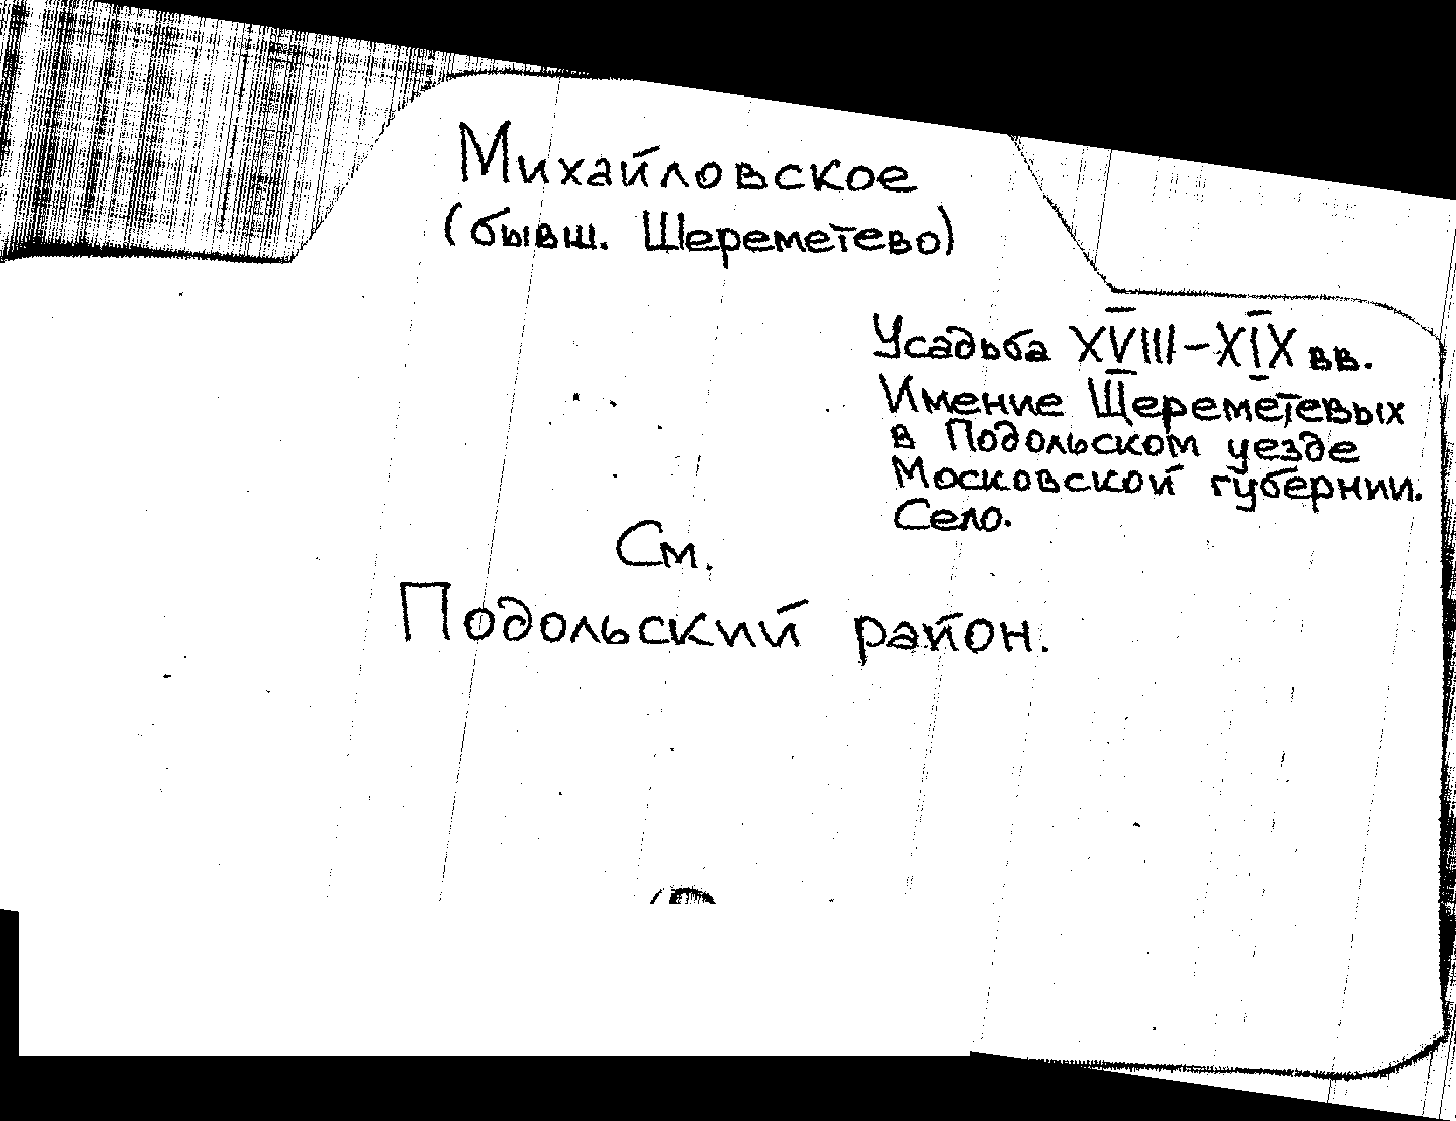 Михайловское
(бывш. Шереметево)
Усадьба XVIII-XIX вв.
Имение Шереметевых
в Подольском уезде
Московской губернии.
Село.
См.
Подольский район.